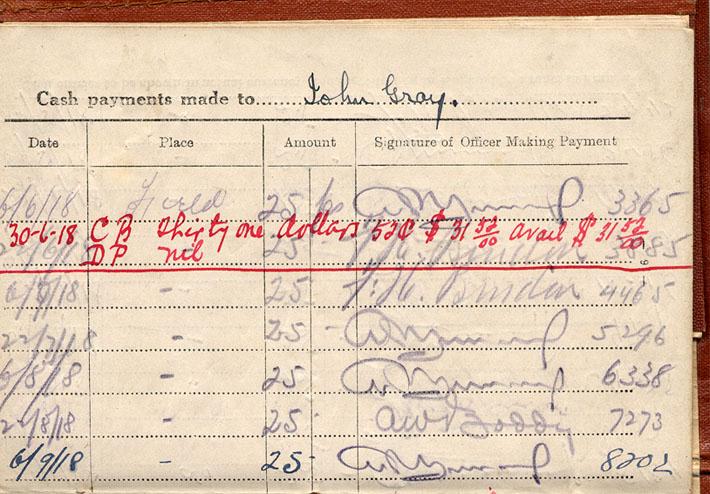 Cash payments made to John Gray.
Date Place Amount Signature of Officer Making Payment
6/6/18 Field 25 3365
30-6-18 CB Thirty one dollars 52c $31 52/00 avail $31 52/00
DP nil 25 3885
6/7/18 - 25 4465
22/7/18 - 25 - 5296
6/8/18 - 25 6338
22/8/18 - 25 - AW Boddy 7273
6/9/18 - 25 - 8202